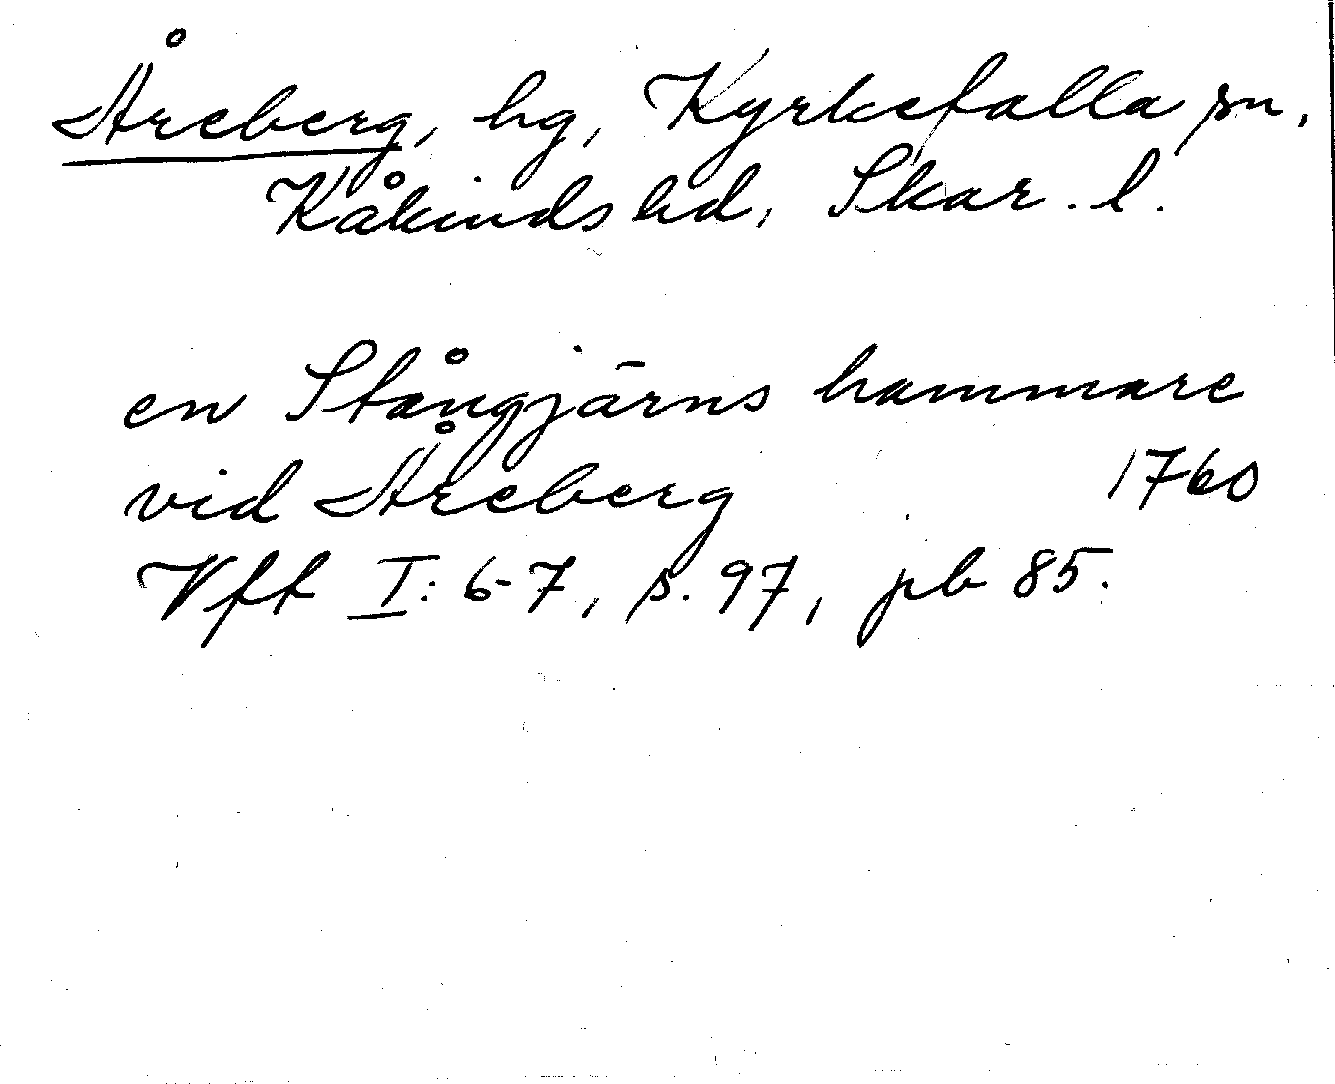 Åreberg, hg, Kyrkefalla sn,
Kåkinds hd, Skar. l.
en Stångjärns hammare
vid Åreberg 1760
Vff I: 6-7, s. 97, pb 85.